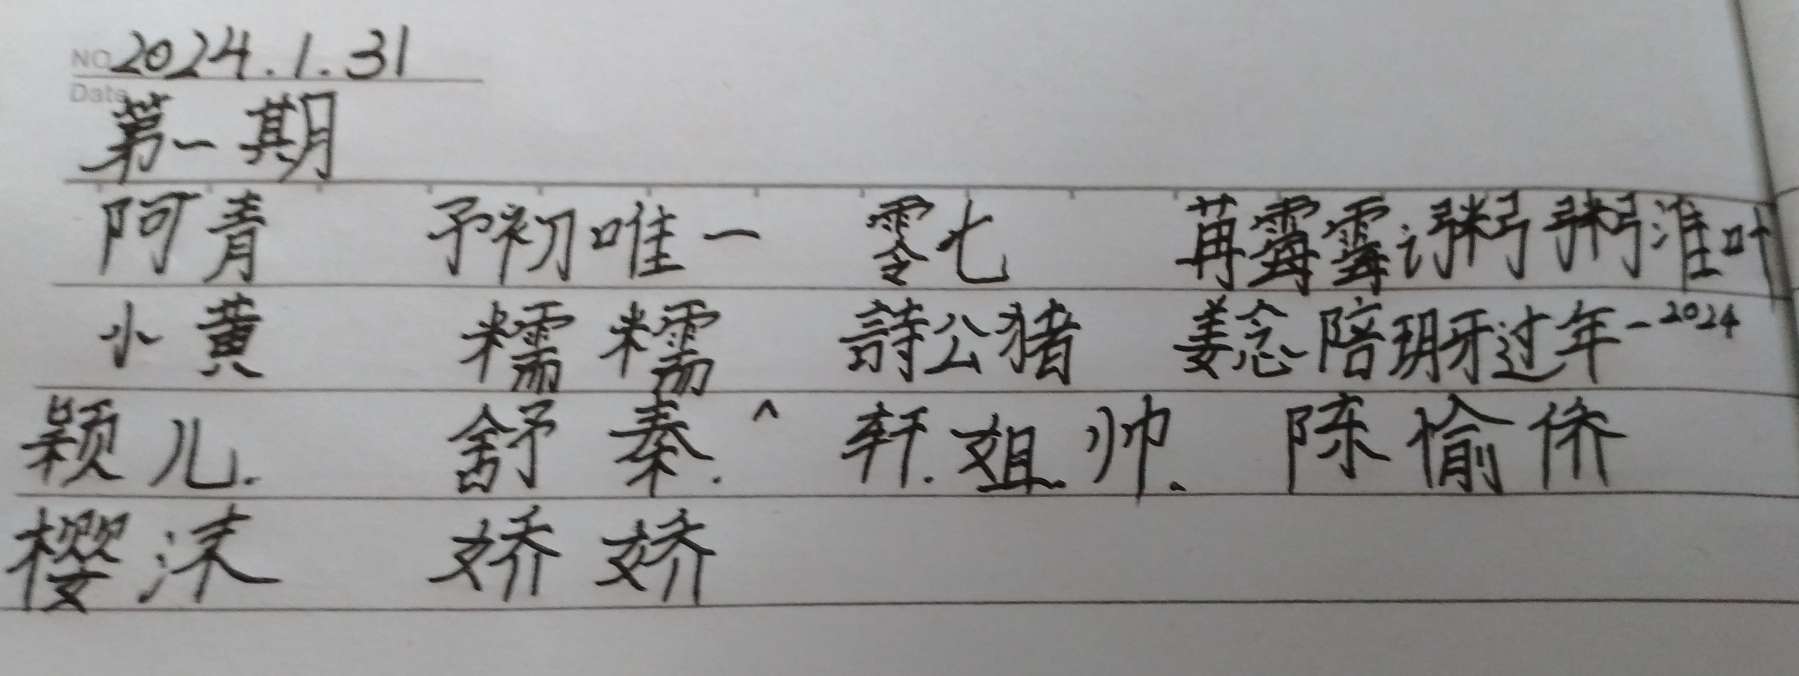 NO 2024.1.31
Date
第一期
阿青 予初唯一 零七 苒霉霉讠粥粥淮叶
小黄 糯糯 詩公猪 姜念陪玥牙过年-2024
颖儿. 舒秦.^ 轩.姐.帅. 陈愉侨
樱沫 娇娇